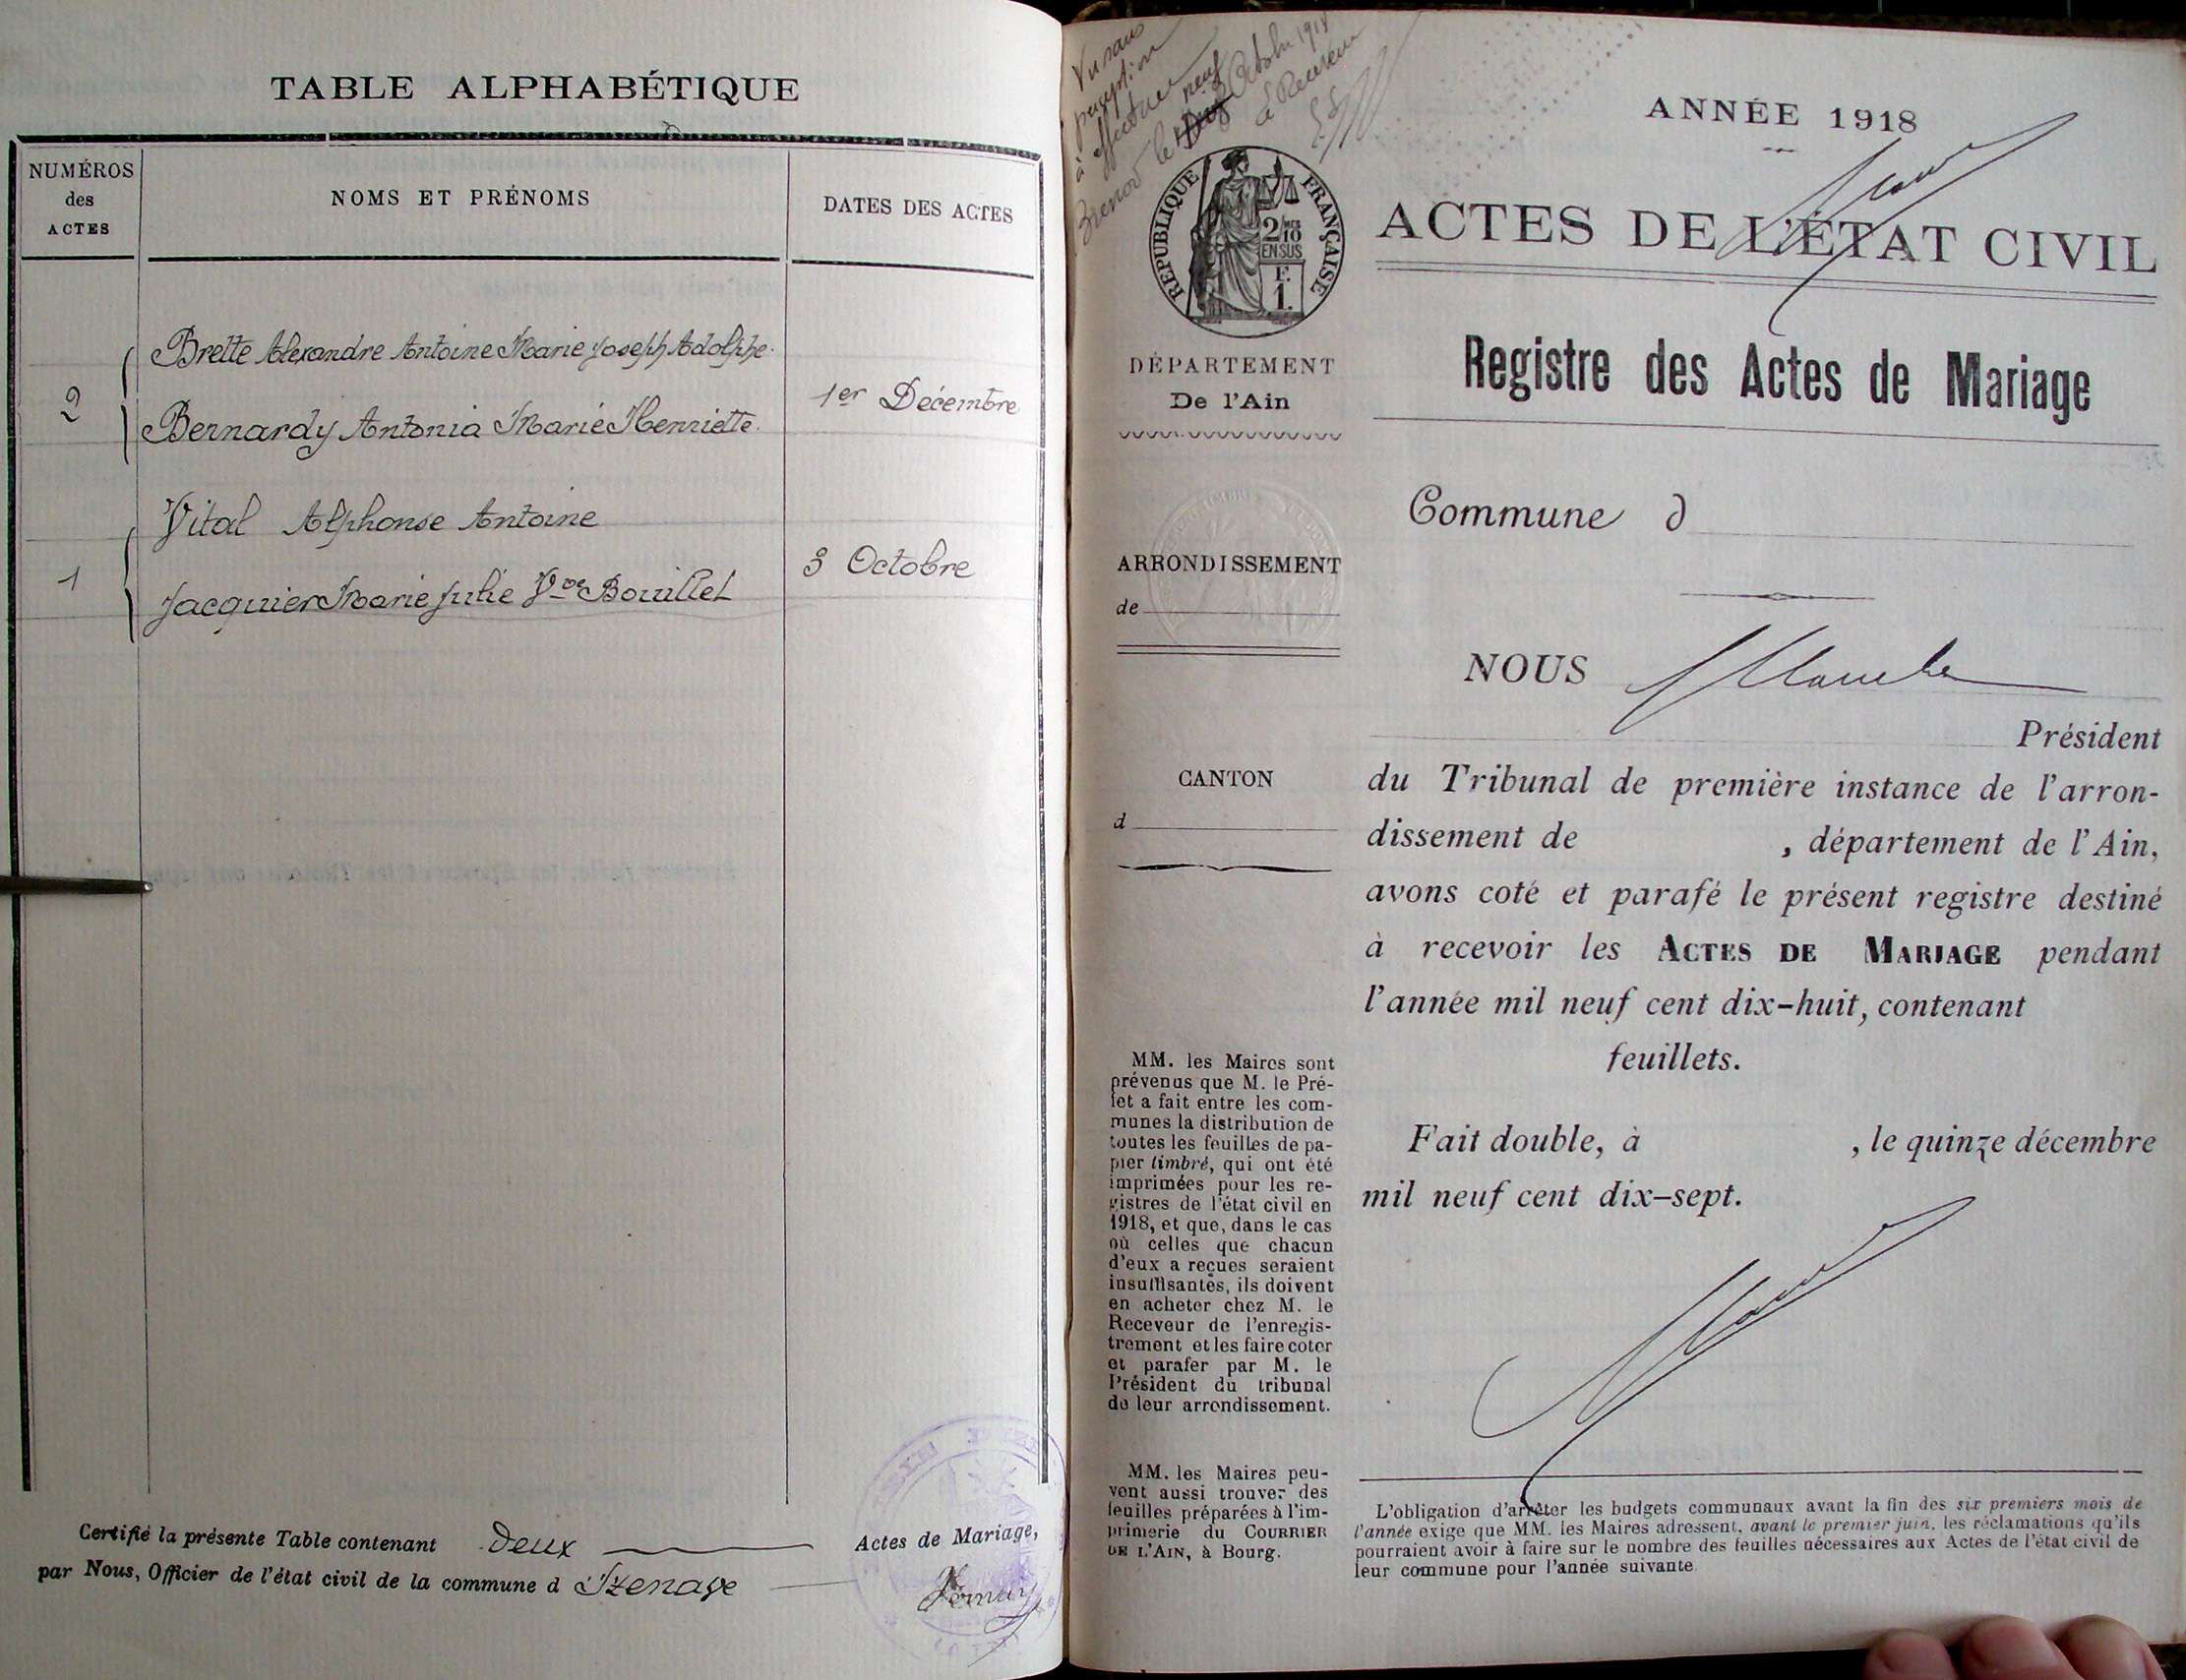 TABLE ALPHABÉTIQUE
NUMÉROS
des
ACTES
NOMS ET PRÉNOMS
DATES DES ACTES
Brette Alexandre Antoine Marie Joseph Adolphe
2
1er Décembre
Bernardy Antonia Marie Henriette
Vital Alphonse Antoine
1
3 Octobre
Jacquier Marie Julie Vve Bouillet
Certifié la présente Table contenant deux Actes de Mariage,
par Nous, Officier de l'état civil de la commune d Izenave
Vu sans
perception
à effectuer
Brenod le neuf Octobre 1918
Le Receveur
RÉPUBLIQUE FRANÇAISE
2/10
EN SUS
F.
1.
DÉPARTEMENT
De l'Ain
ARRONDISSEMENT
de
CANTON
d
MM. les Maires sont
prévenus que M. le Pré-
fet a fait entre les com-
munes la distribution de
toutes les feuilles de pa-
pier timbré, qui ont été
imprimées pour les re-
gistres de l'état civil en
1918, et que, dans le cas
où celles que chacun
d'eux a reçues seraient
insuffisantes, ils doivent
en acheter chez M. le
Receveur de l'enregis-
trement et les faire coter
et parafer par M. le
Président du tribunal
de leur arrondissement.
MM. les Maires peu-
vent aussi trouver des
feuilles préparées à l'im-
primerie du COURRIER
DE L'AIN, à Bourg.
ANNÉE 1918
ACTES DE L'ÉTAT CIVIL
Registre des Actes de Mariage
Commune d
NOUS
Président
du Tribunal de première instance de l'arron-
dissement de , département de l'Ain,
avons coté et parafé le présent registre destiné
à recevoir les ACTES DE MARIAGE pendant
l'année mil neuf cent dix-huit, contenant
feuillets.
Fait double, à , le quinze décembre
mil neuf cent dix-sept.
L'obligation d'arrêter les budgets communaux avant la fin des six premiers mois de
l'année exige que MM. les Maires adressent, avant le premier juin, les réclamations qu'ils
pourraient avoir à faire sur le nombre des feuilles nécessaires aux Actes de l'état civil de
leur commune pour l'année suivante.